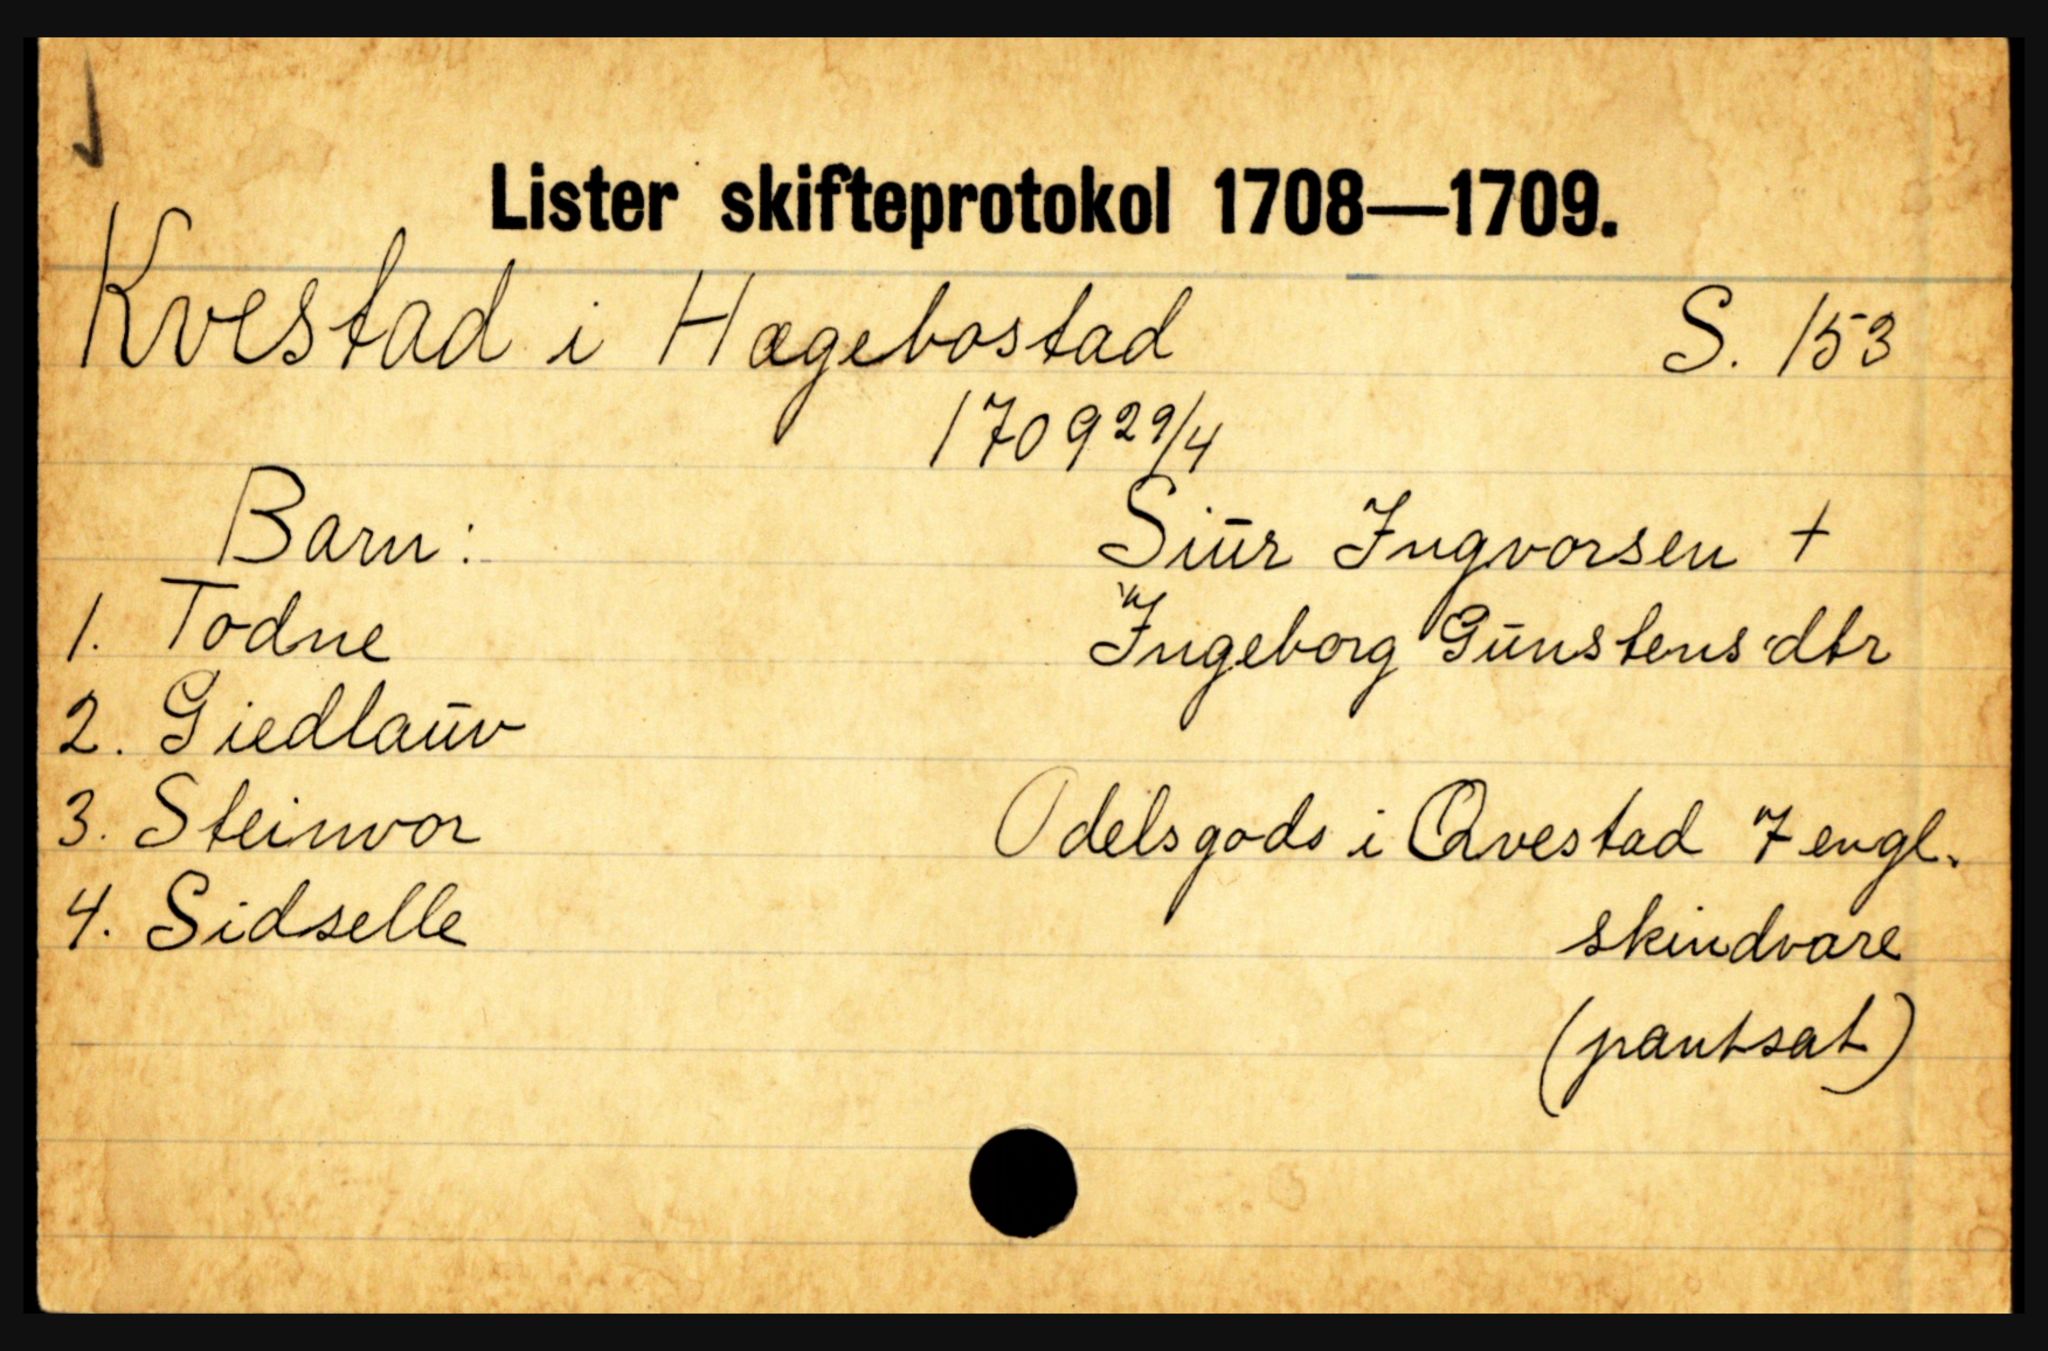 Lister skifteprotokol 1708—1709.
Kvestad i Hægebostad S. 153
1709 29/4
Barn: Siūr Ingvorsen +
1. Todne Ingeborg Gūnstensdtr
2. Giedlaūv
3. Steinvor Odelsgods i Qvestad 7 engl.
4. Sidselle skindvare
(pantsat)